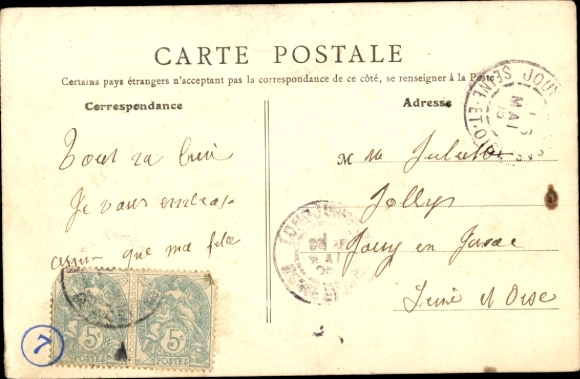 CARTE POSTALE
Certains pays étrangers n'acceptant pas la correspondance de ce côté, se renseigner à la Poste
Correspondance
Adresse
Tout va bien
Je vous embrasse
que ma fille
M
Jollys
Jouy en Josas
Seine et Oise
JOUY
SEINE-ET-OISE
MAI
5c 5c
POSTES POSTES
7